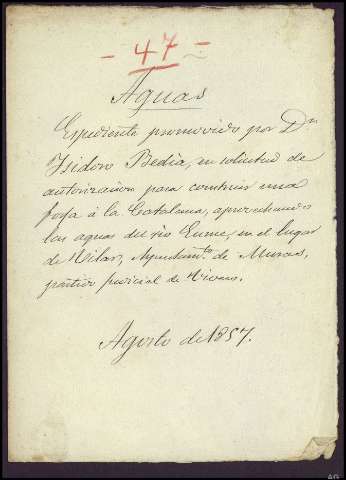 - 47 -
Aguas
Expediente promovido por Dn
Isidoro Bedia, en solicitud de
autorizacion para construir una
forja á la Catalana, aprovechando
las aguas del rio Eume, en el lugar
de Vilar, Ayuntamto. de Muras,
partido judicial de Vivero.
Agosto de 1857.
AG